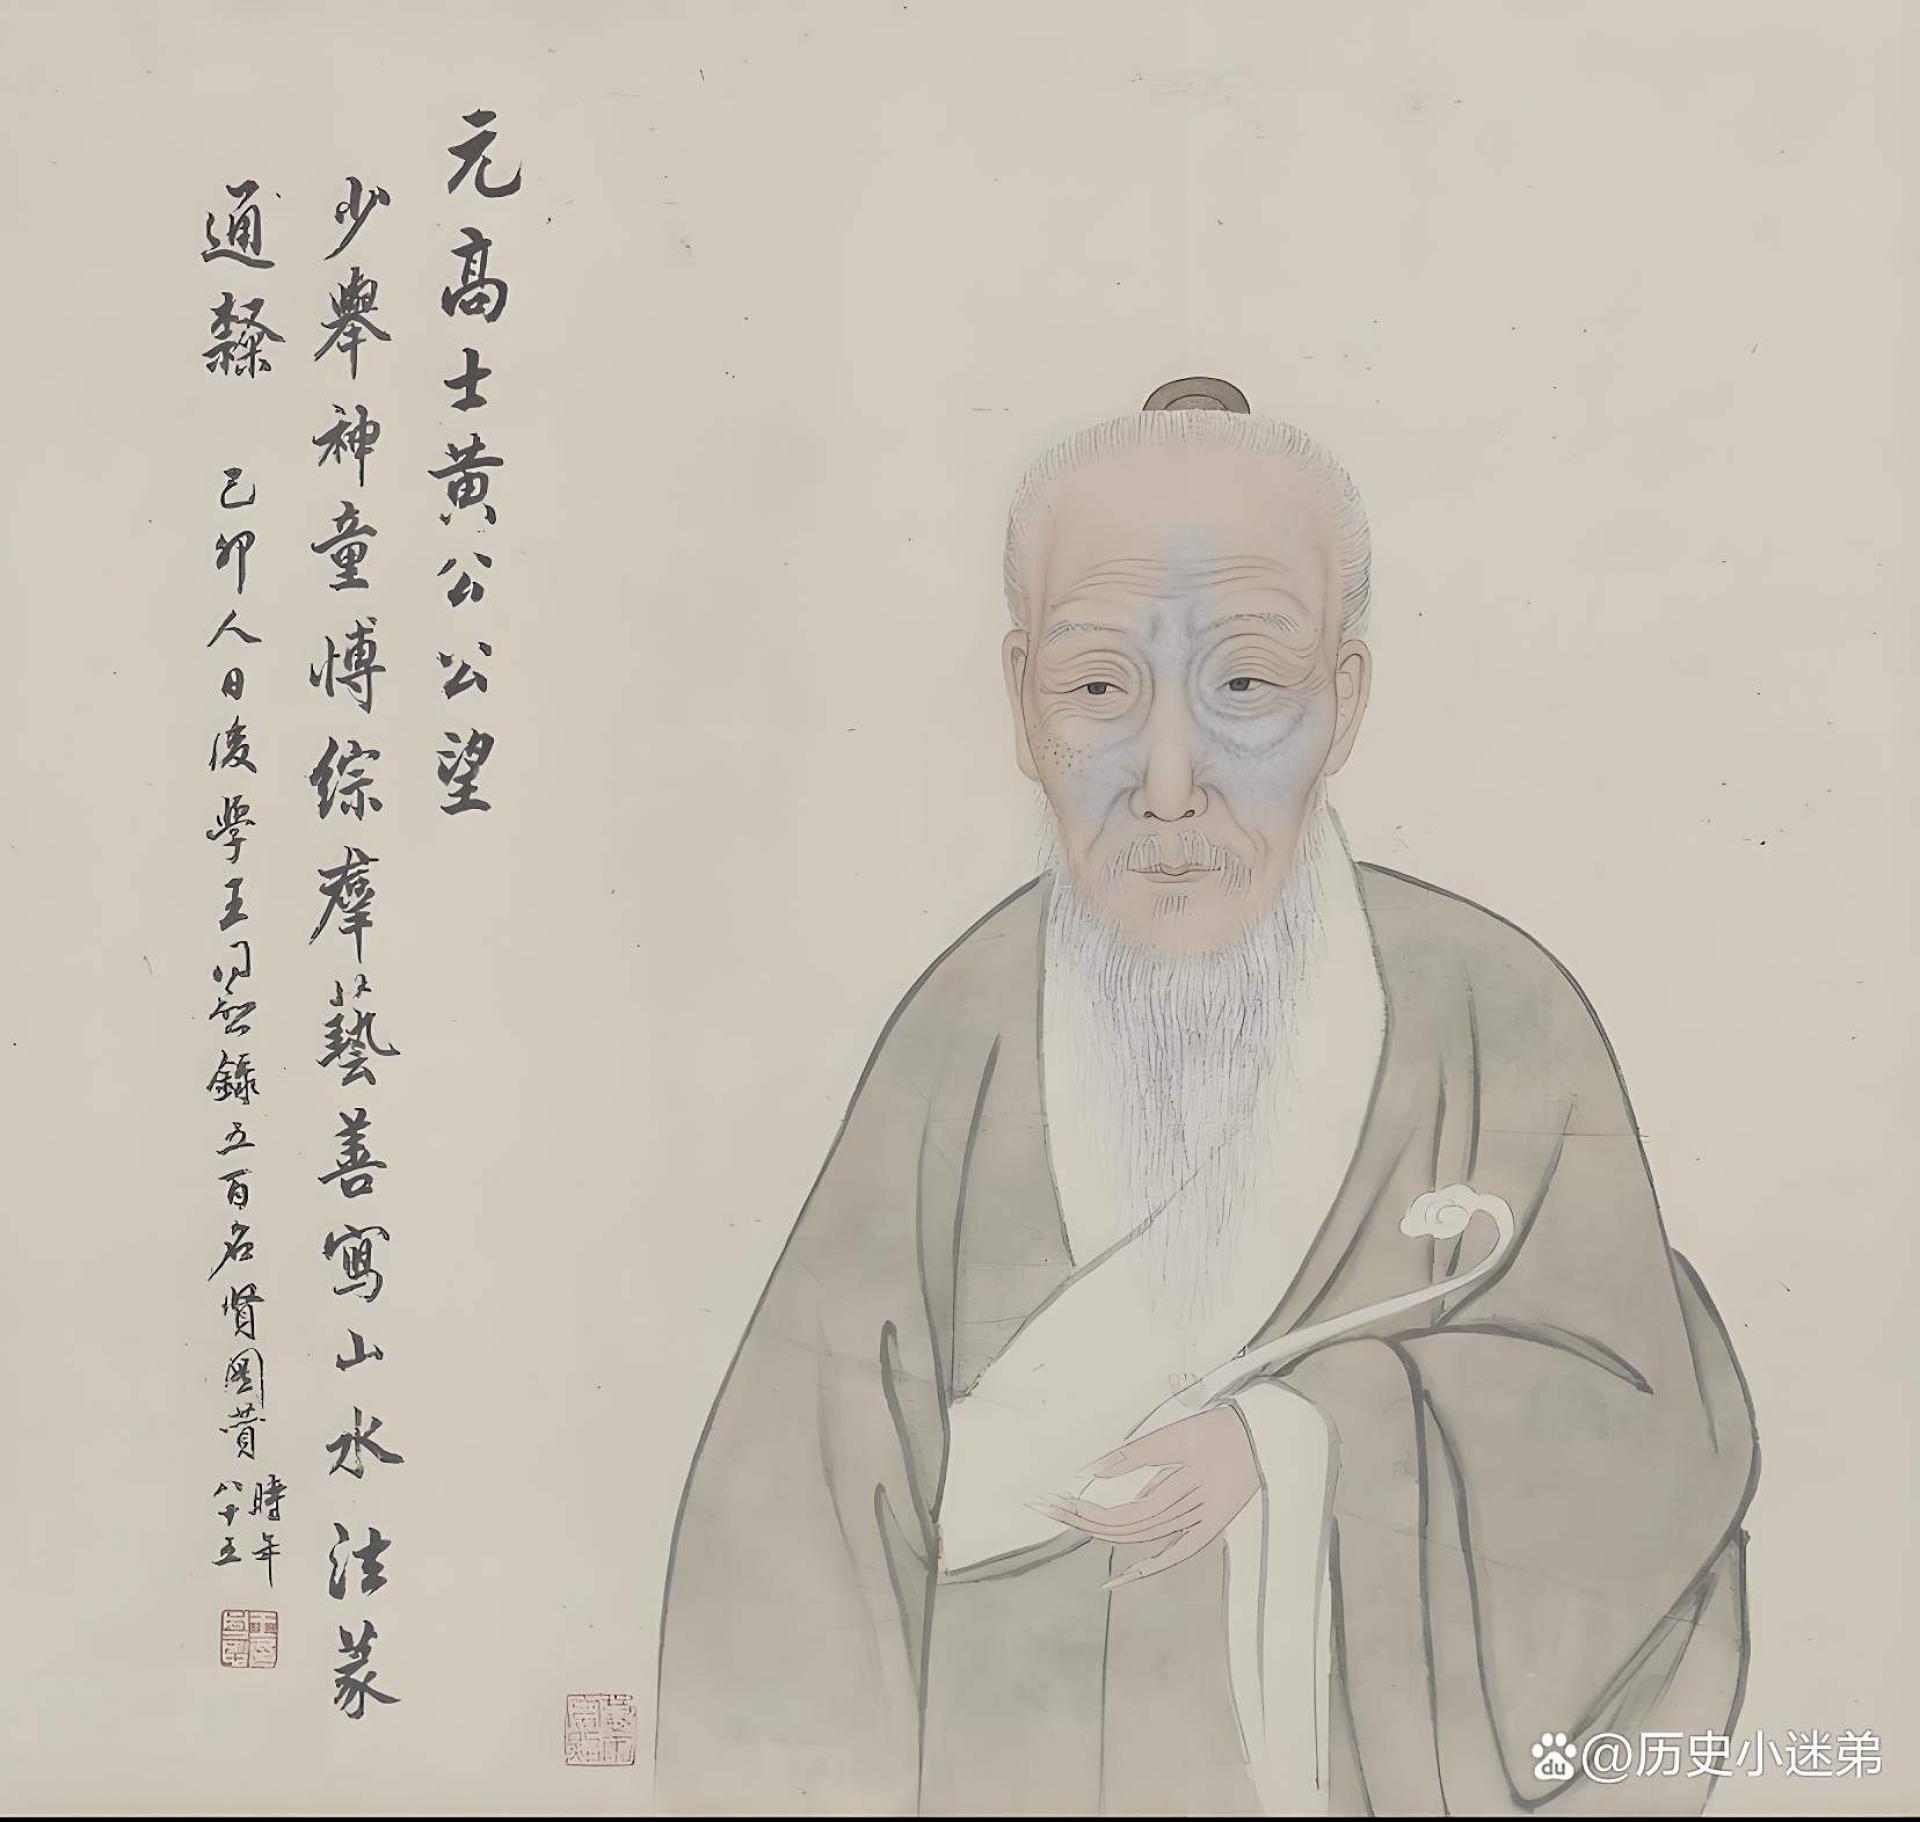 元高士黄公公望
少舉神童博綜羣藝善寫山水法蒙
通隸 己卯人日後學王同愈錄五百名賢圖贊 時年八十五
@历史小迷弟